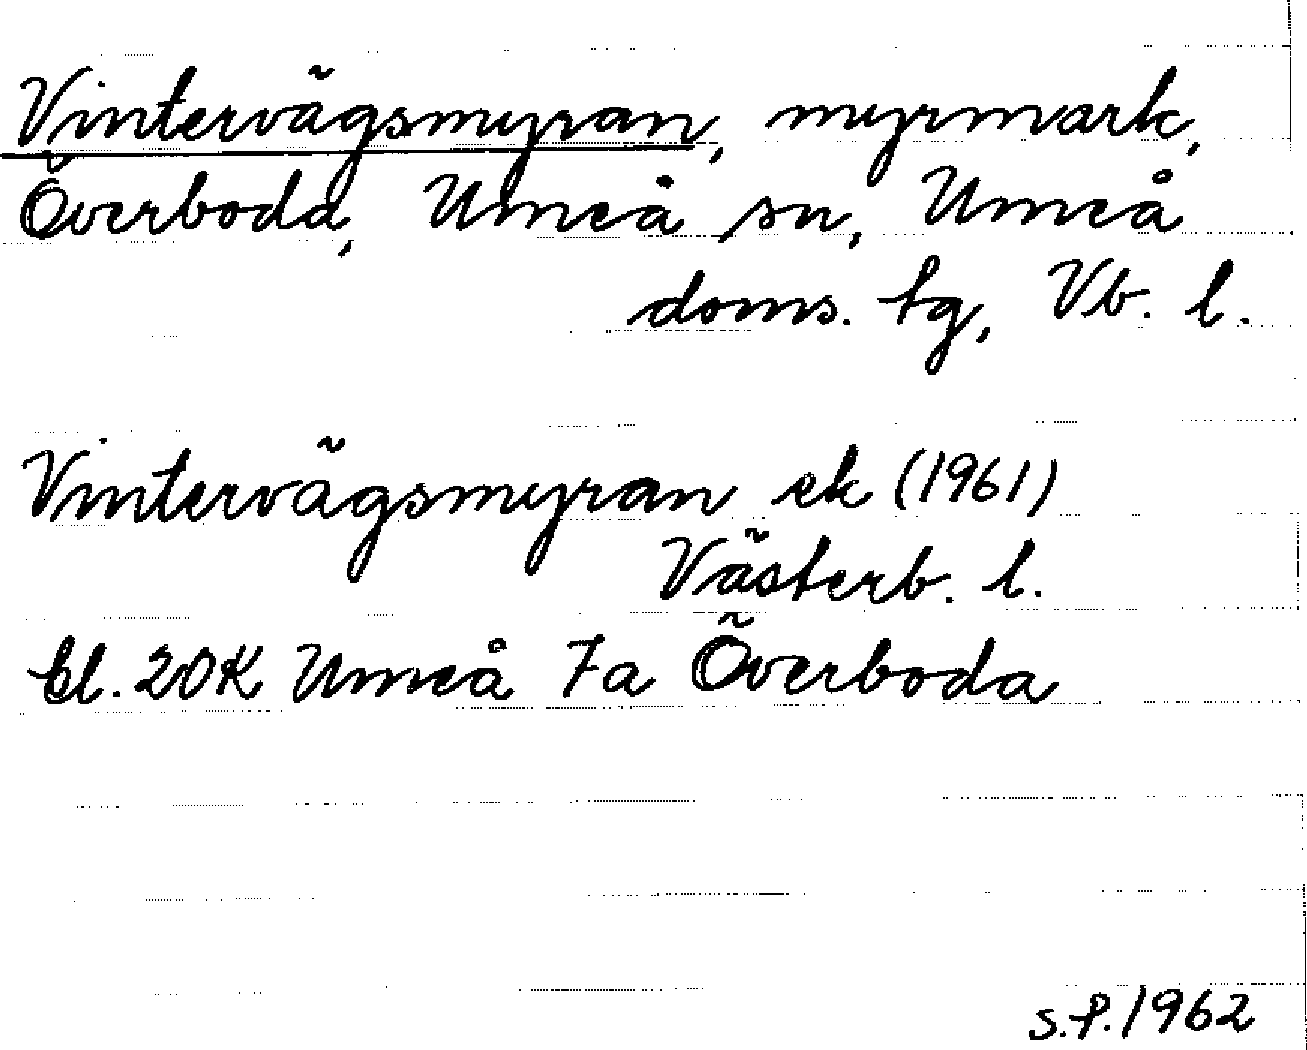 Vintervägsmyran, myrmark,
Överboda, Umeå sn, Umeå
doms. tg, Vb. l.
Vintervägsmyran ek (1961)
Västerb. l.
bl. 20K Umeå 7a Överboda
s.f. 1962